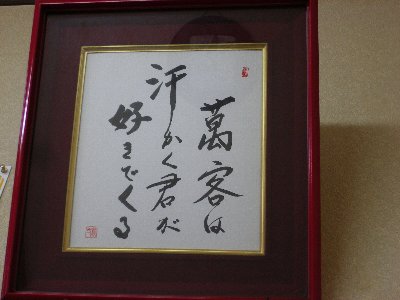 萬客は
汗かく君が
好きでくる